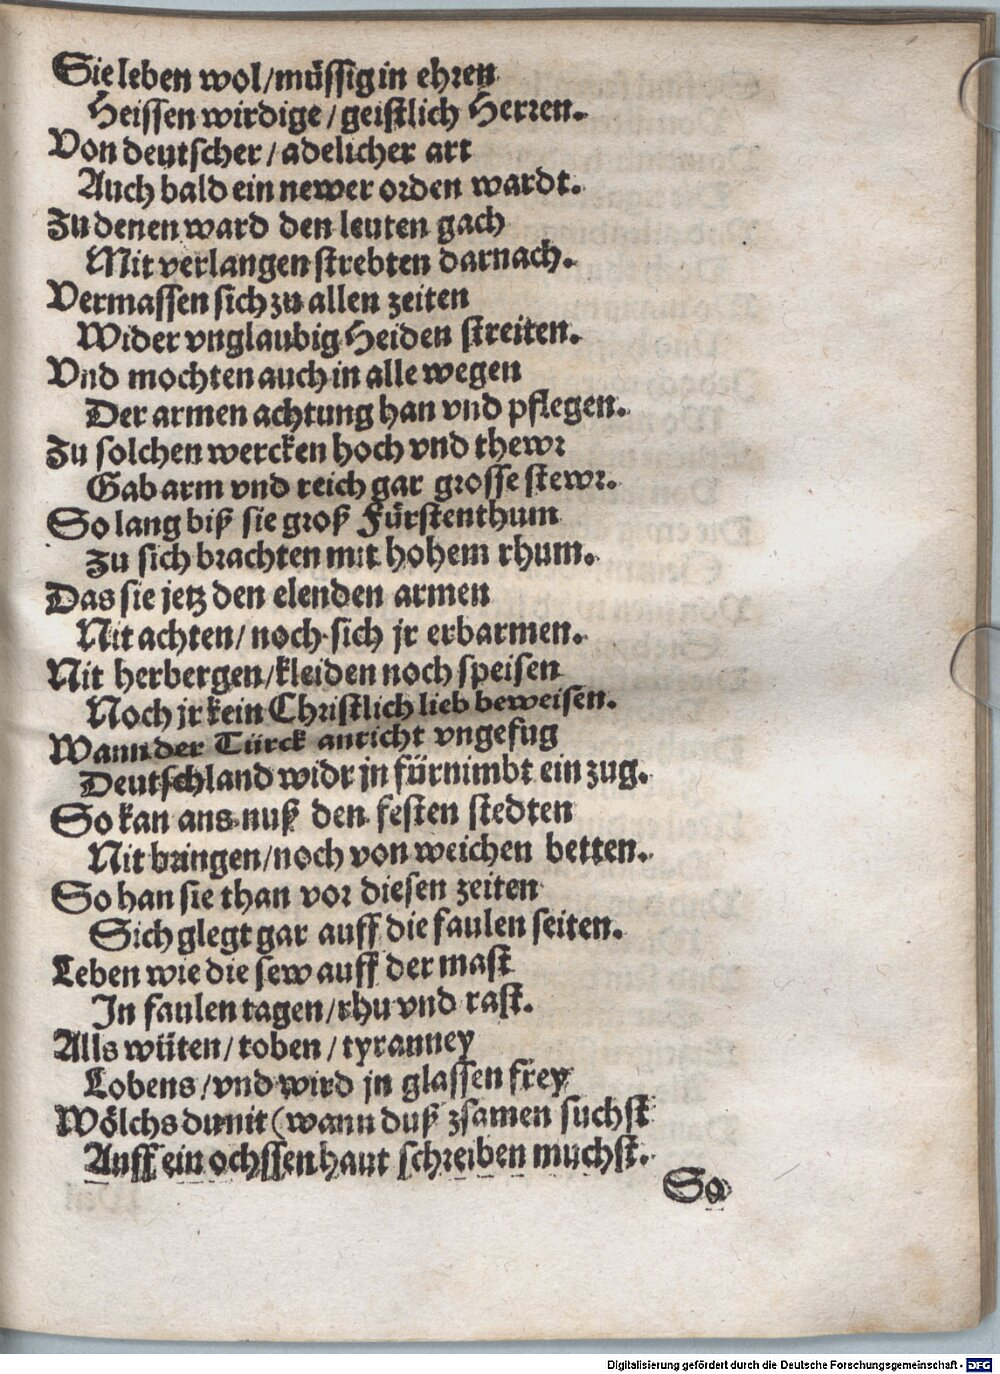 Sie leben wol/müssig in ehren
Heissen wirdige/geistlich Herren.
Von deutscher/adelicher art
Auch bald ein newer orden wardt.
Zu denen ward den leuten gach
Mit verlangen strebten darnach.
Vermassen sich zu allen zeiten
Wider vnglaubig Heiden streiten.
Vnd mochten auch in alle wegen
Der armen achtung han vnd pflegen.
Zu solchen wercken hoch vnd thewr
Gab arm vnd reich gar grosse stewr.
So lang biß sie groß Fürstenthum
Zu sich brachten mit hohem rhum.
Das sie jetz den elenden armen
Nit achten/noch sich jr erbarmen.
Nit herbergen/kleiden noch speisen
Noch jr kein Christlich lieb beweisen.
Wann der Türck anricht vngefug
Deutschland widr jn fürnimbt ein zug.
So kan ans nuß den festen stedten
Nit bringen/noch von weichen betten.
So han sie than vor diesen zeiten
Sich glegt gar auff die faulen seiten.
Leben wie die sew auff der mast
In faulen tagen/rhu vnd rast.
Alls wüten/toben/tyranney
Lobens/vnd wird jn glassen frey
Wölchs du nit (wann duß zsamen suchst
Auff ein ochssen haut schreiben muchst.
So
Digitalisierung gefördert durch die Deutsche Forschungsgemeinschaft - DFG